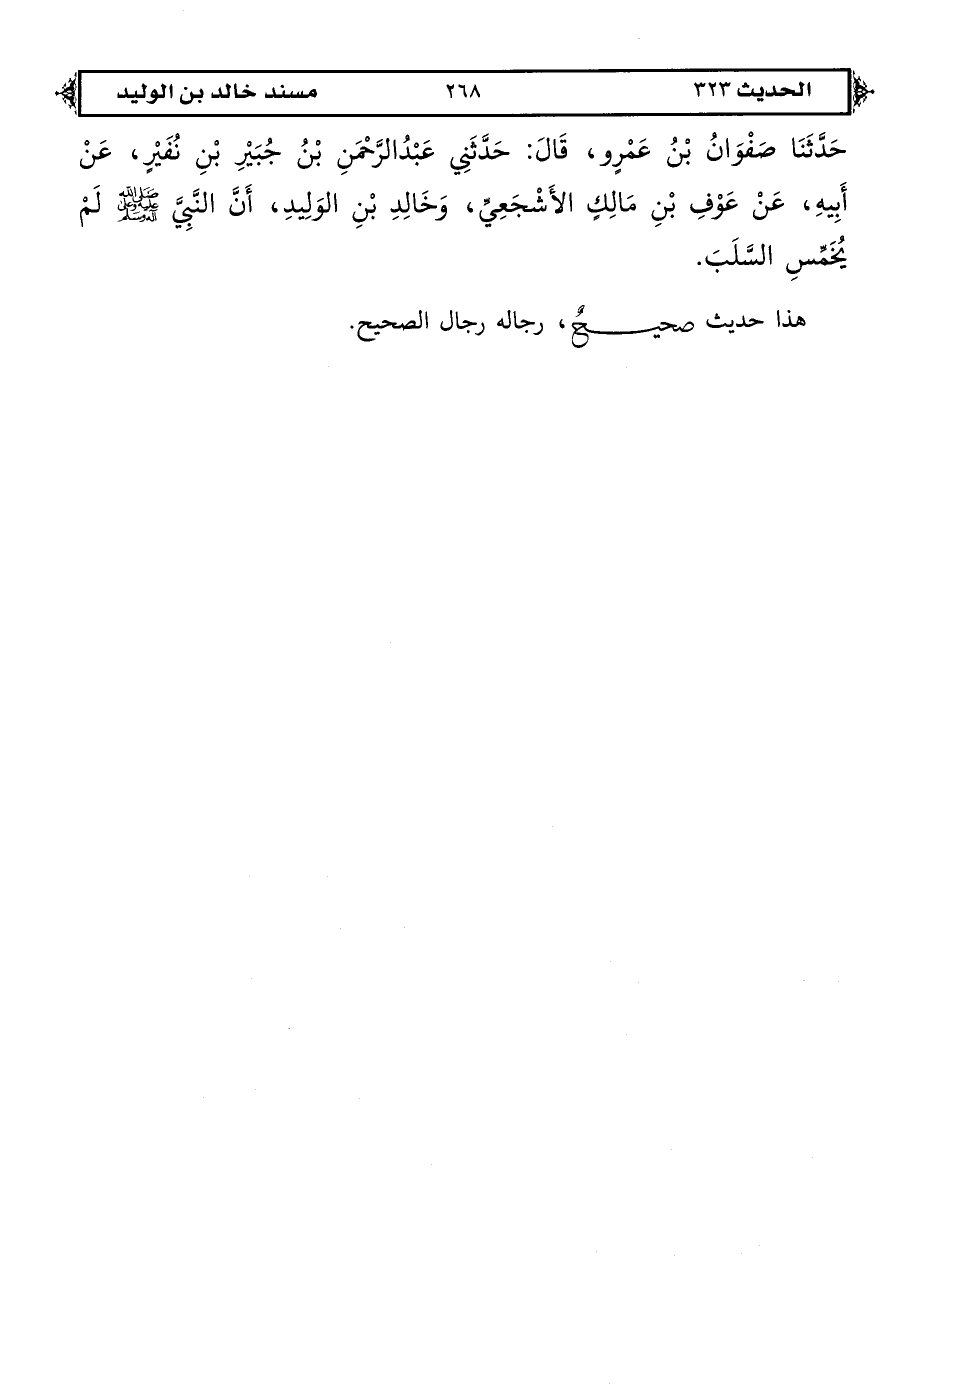 الحديث ٣٢٣ ٢٦٨ مسند خالد بن الوليد
حَدَّثَنَا صَفْوَانُ بْنُ عَمْرٍو، قَالَ: حَدَّثَنِي عَبْدُالرَّحْمَنِ بْنُ جُبَيْرِ بْنِ نُفَيْرٍ، عَنْ
أَبِيهِ، عَنْ عَوْفِ بْنِ مَالِكٍ الأَشْجَعِيِّ، وَخَالِدِ بْنِ الوَلِيدِ، أَنَّ النَّبِيَّ ﷺ لَمْ
يُخَمِّسِ السَّلَبَ.
هذا حديث صحيـــــحٌ، رجاله رجال الصحيح.